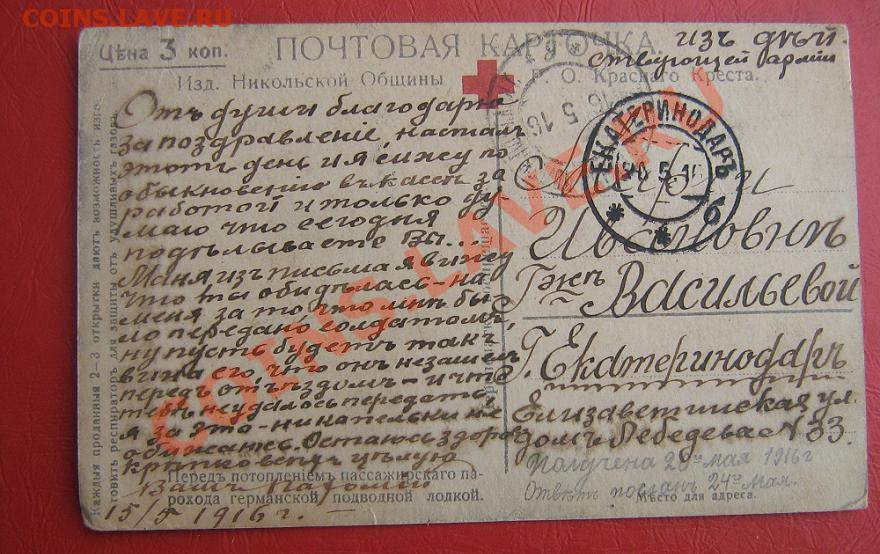 COINS.LAVE.RU
Цѣна 3 коп.
ПОЧТОВАЯ КАРТОЧКА.
Изд. Никольской Общины
О. Краснаго Креста.
изъ дѣй-
ствующей арміи
Отъ души благодарю
за поздравленіе, насталъ
этотъ день и я сижу по
обыкновенію въ кассѣ за
работой и только ду-
маю что сегодня
подѣлываете Вы...
Маня изъ письма я вижу
что ты обидѣлась на
меня за то что мнѣ бы-
ло передано солдатомъ,
ну пусть будетъ такъ
вина его что онъ не зашелъ
передъ отъѣздомъ и что
тебѣ не удалось передать
я за это никапельки не
обижаюсь. Остаюсь здоровъ
крѣпко всѣхъ цѣлую
Вашъ
15/5 1916 г.
Передъ потопленіемъ пассажирскаго па-
рохода германской подводной лодкой.
Каждыя проданныя 2—3 открытки даютъ возможность изго-
товить респираторъ для защиты отъ удушливыхъ газовъ.
ЕКАТЕРИНОДАРЪ
20 5 16
б
16 5 16
Ивановнѣ
Гжѣ Васильевой
Г. Екатеринодаръ
Елизаветинская ул.
домъ Лебедева № 33.
Получена 20го мая 1916 г
Отвѣтъ посланъ 24го мая.
Мѣсто для адреса.
COINS.LAVE.RU